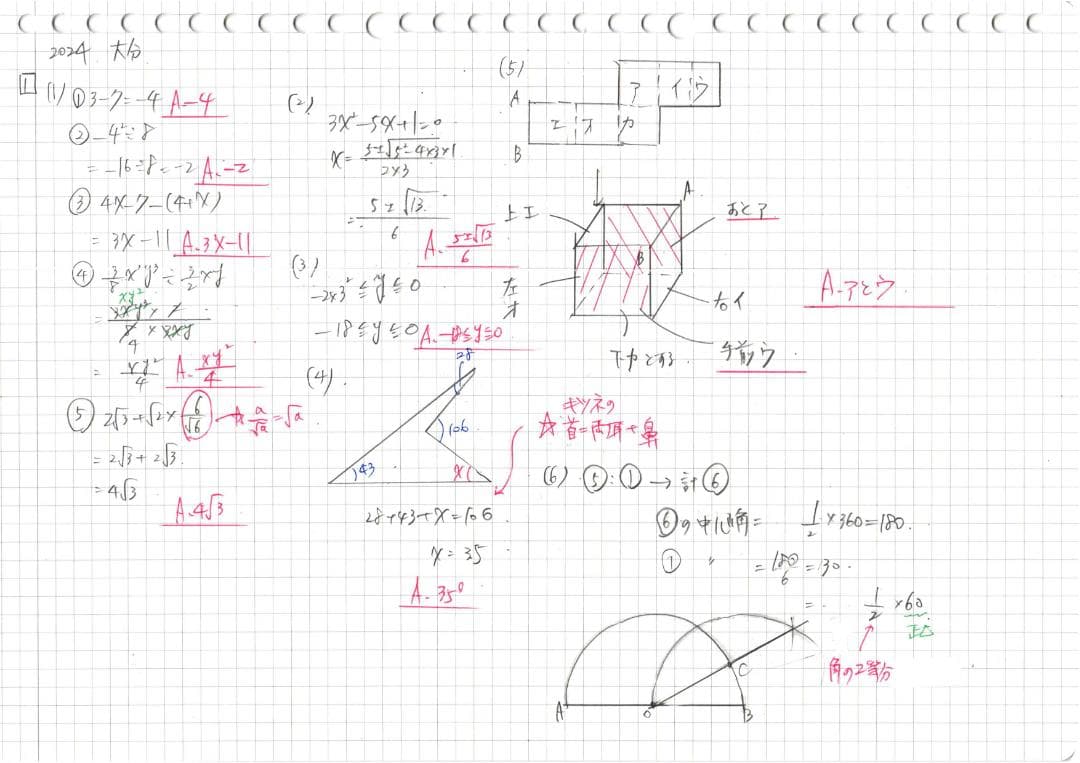 2024 大分
1
(1) ① 3-7=-4 A.-4
② -4²÷8
=-16÷8=-2 A.-2
③ 4x-7-(4+x)
=3x-11 A.3x-11
④ 3/8x²y³÷3/2xy
xy²
4
= xy²/4 A. xy²/4
⑤ 2√3+√2×6/√6 → ☆ a/√a=√a
=2√3+2√3
=4√3
A.4√3
(2)
3x²-5x+1=0
x=5±√5²-4×3×1/2×3
=5±√13/6
A. 5±√13/6
(3)
-2×3²≦y≦0
-18≦y≦0 A.-18≦y≦0
(4)
28
106
43
x
☆ キツネの
首=両耳+鼻
28+43+x=106
x=35
A. 35°
(5)
ア イ ウ
A
エ オ カ
B
上エ
A
おくア
B
左オ
右イ
下カとする
手前ウ
A.アとウ
(6) ⑤:① → 計⑥
⑥の中心角= 1/2×360=180
① 〃 =180/6=30
= 1/2×60
正△
角の2等分
C
A O B